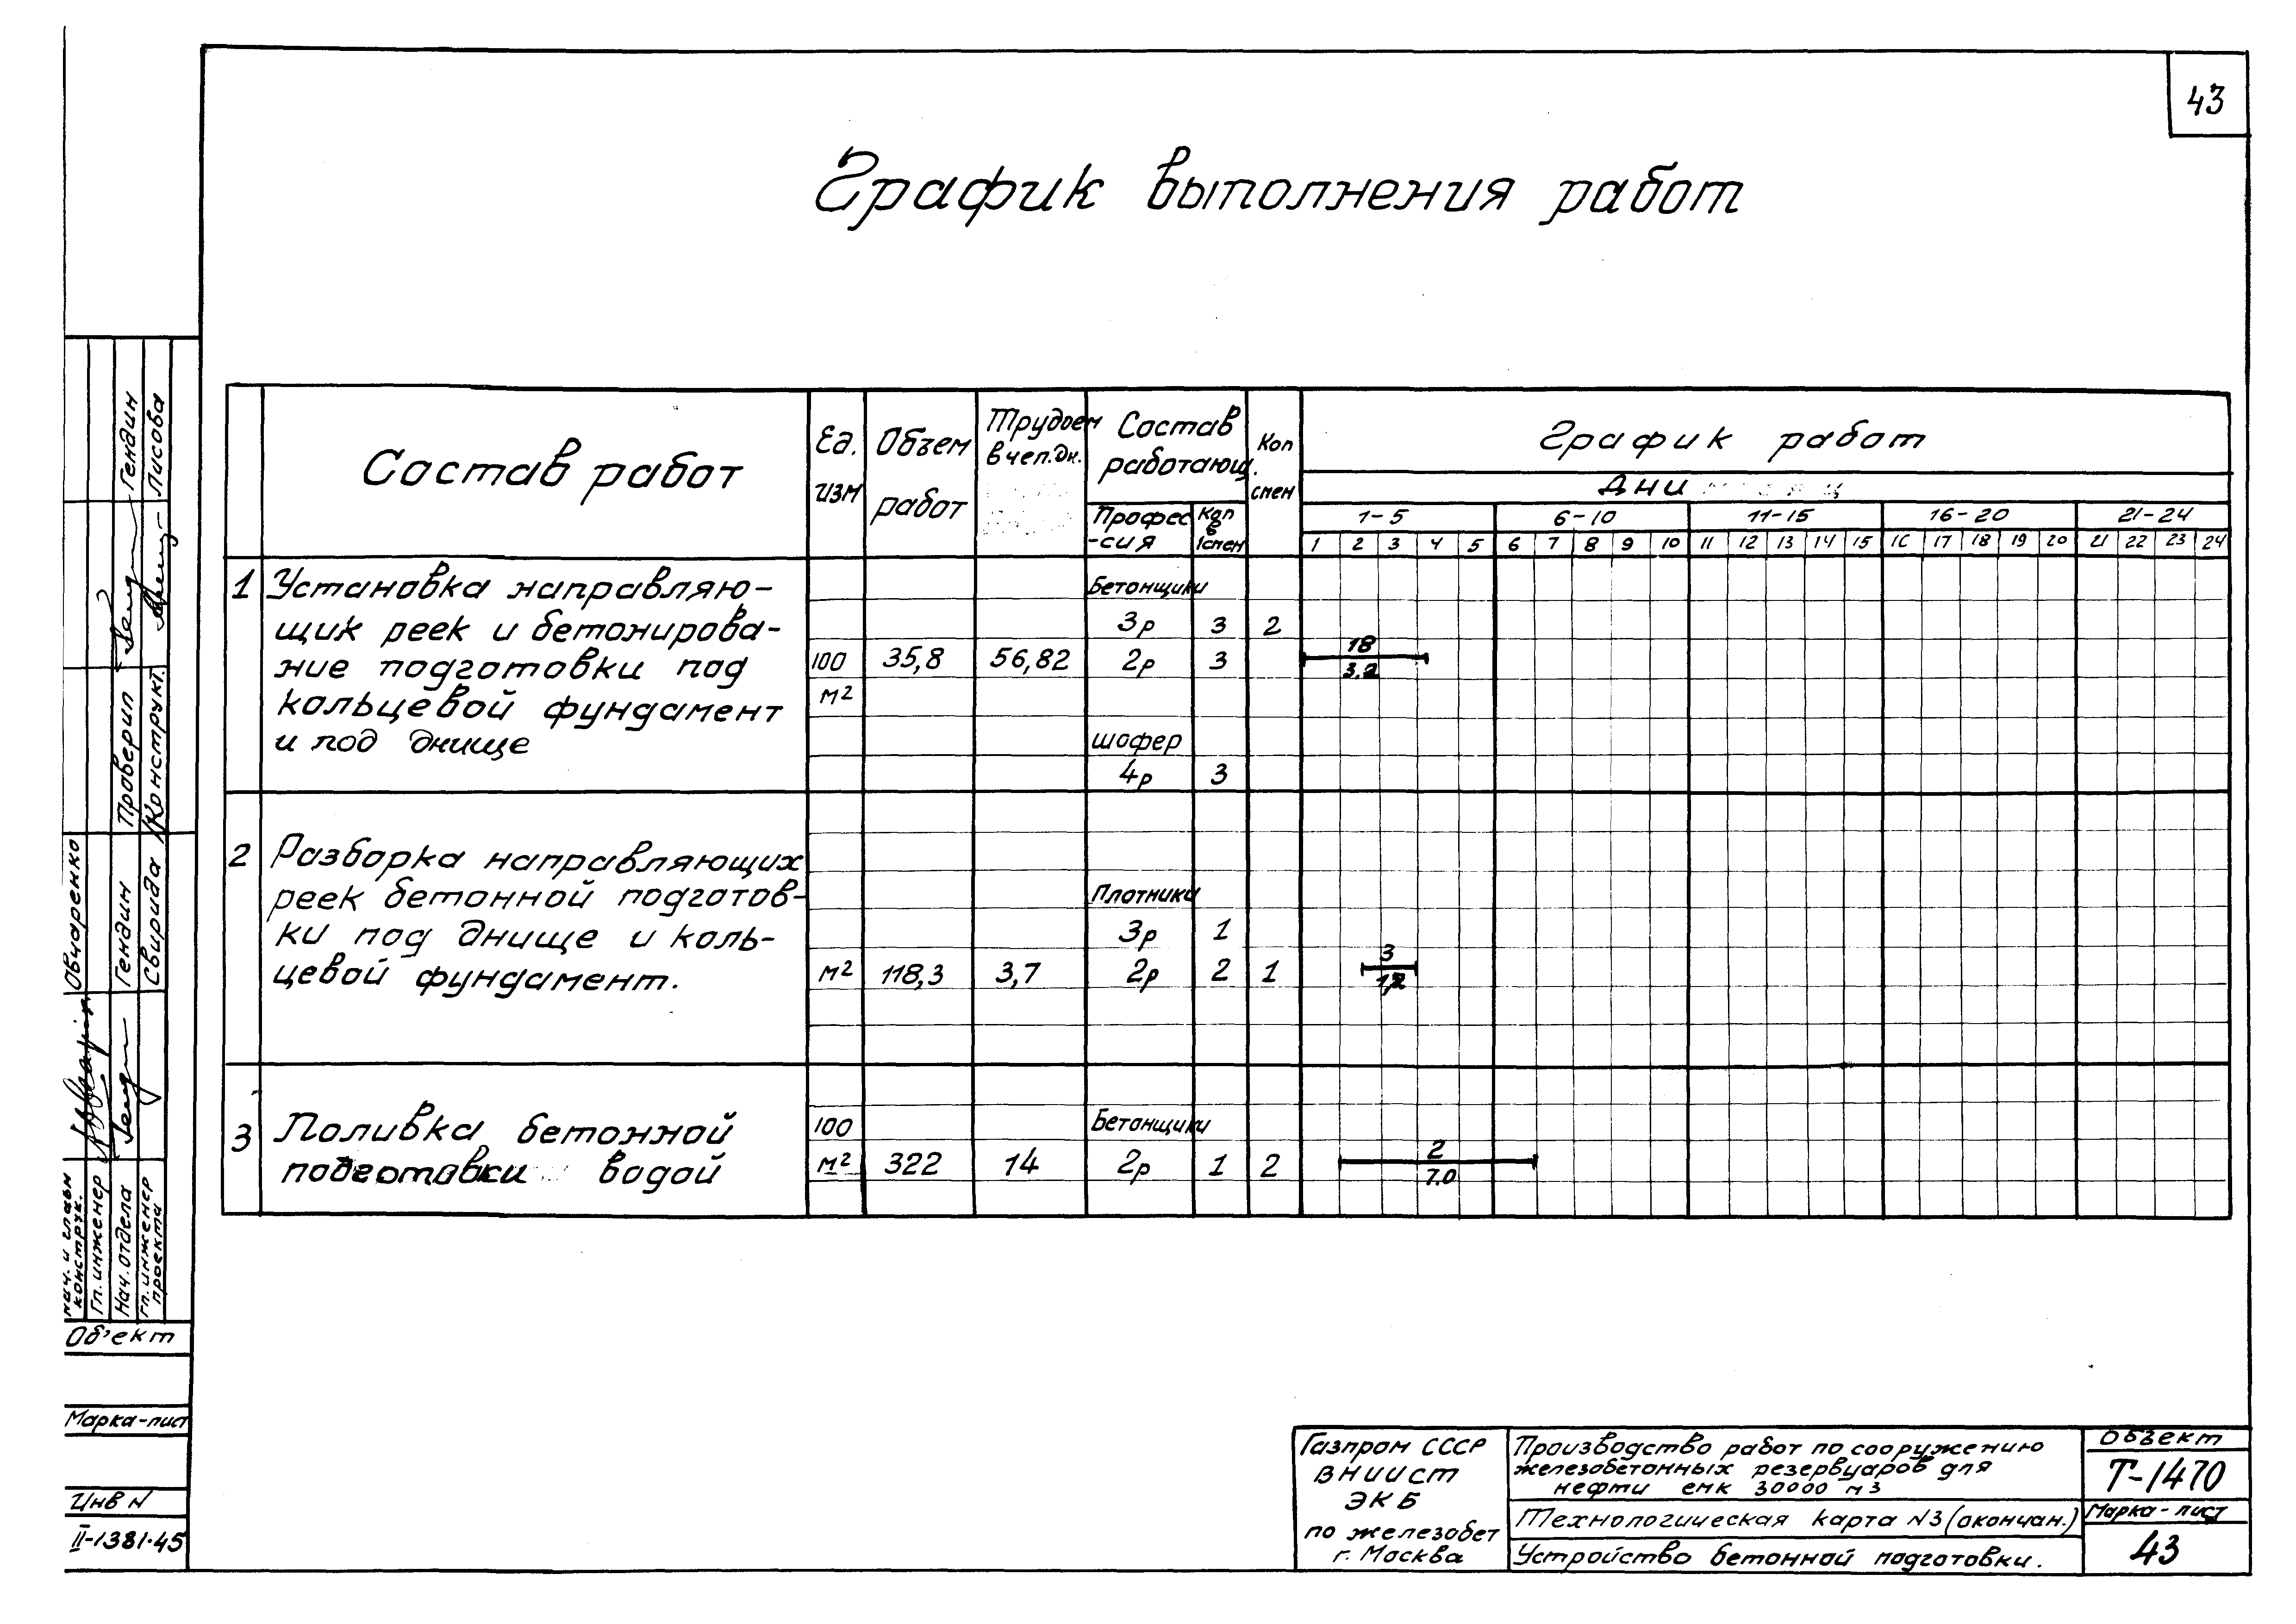 43
График выполнения работ
Состав работ
Ед. изм
Объем работ
Трудоем в чел.дн.
Состав работающ.
Профес-сия
Кол в 1 смен
Кол смен
График работ
Дни
1-5 6-10 11-15 16-20 21-24
1 2 3 4 5 6 7 8 9 10 11 12 13 14 15 16 17 18 19 20 21 22 23 24
1 Установка направляю-
щик реек и бетонирова-
ние подготовки под
кольцевой фундамент
и под днище
100 м2 35,8 56,82
Бетонщики
3р 3 2
2р 3
шофер
4р 3
18
3.2
2 Разборка направляющих
реек бетонной подготов-
ки под днище и коль-
цевой фундамент.
м2 118,3 3,7
Плотники
3р 1
2р 2 1
3
1,2
3 Поливка бетонной
подготовки водой
100 м2 322 14
Бетонщики
2р 1 2
2
7.0
Гендин
Лисова
Проверил
Конструкт.
Овчаренко
Гендин
Свирида
Нач. и главн конструк.
Гл. инженер
Нач. отдела
Гл. инженер проекта
Об'ект
Марка-лист
Инв N
II-1381-45
Газпром СССР
ВНИИСТ
ЭКБ
по железобет
г. Москва
Производство работ по сооружению
железобетонных резервуаров для
нефти емк 30000 м3
Технологическая карта N3 (окончан.)
Устройство бетонной подготовки.
Объект
Т-1470
Марка-лист
43